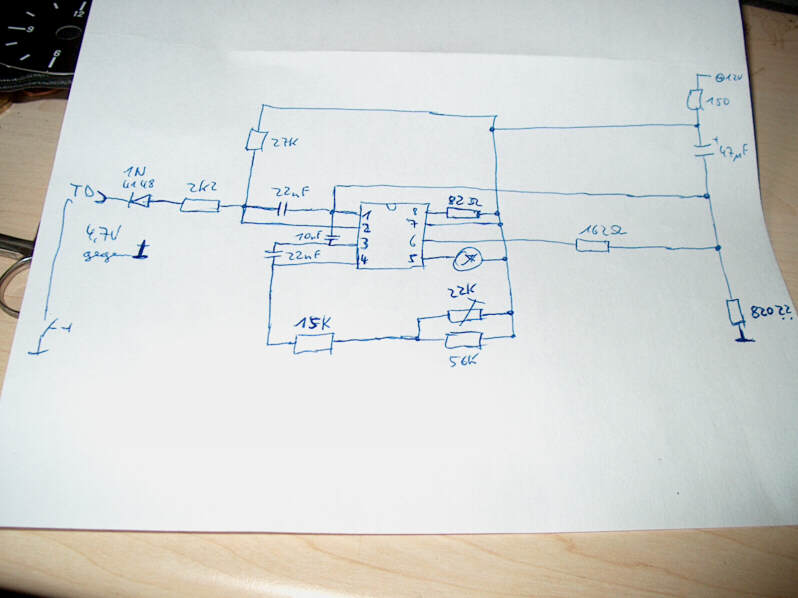 12
9
6
⊕12V
150
+
47µF
27K
1N
4148
2k2
22nF
TD
1
2
3
4
8
7
6
5
82Ω
10nF
22nF
162Ω
4,7V
gegen
22K
15K
56K
820??